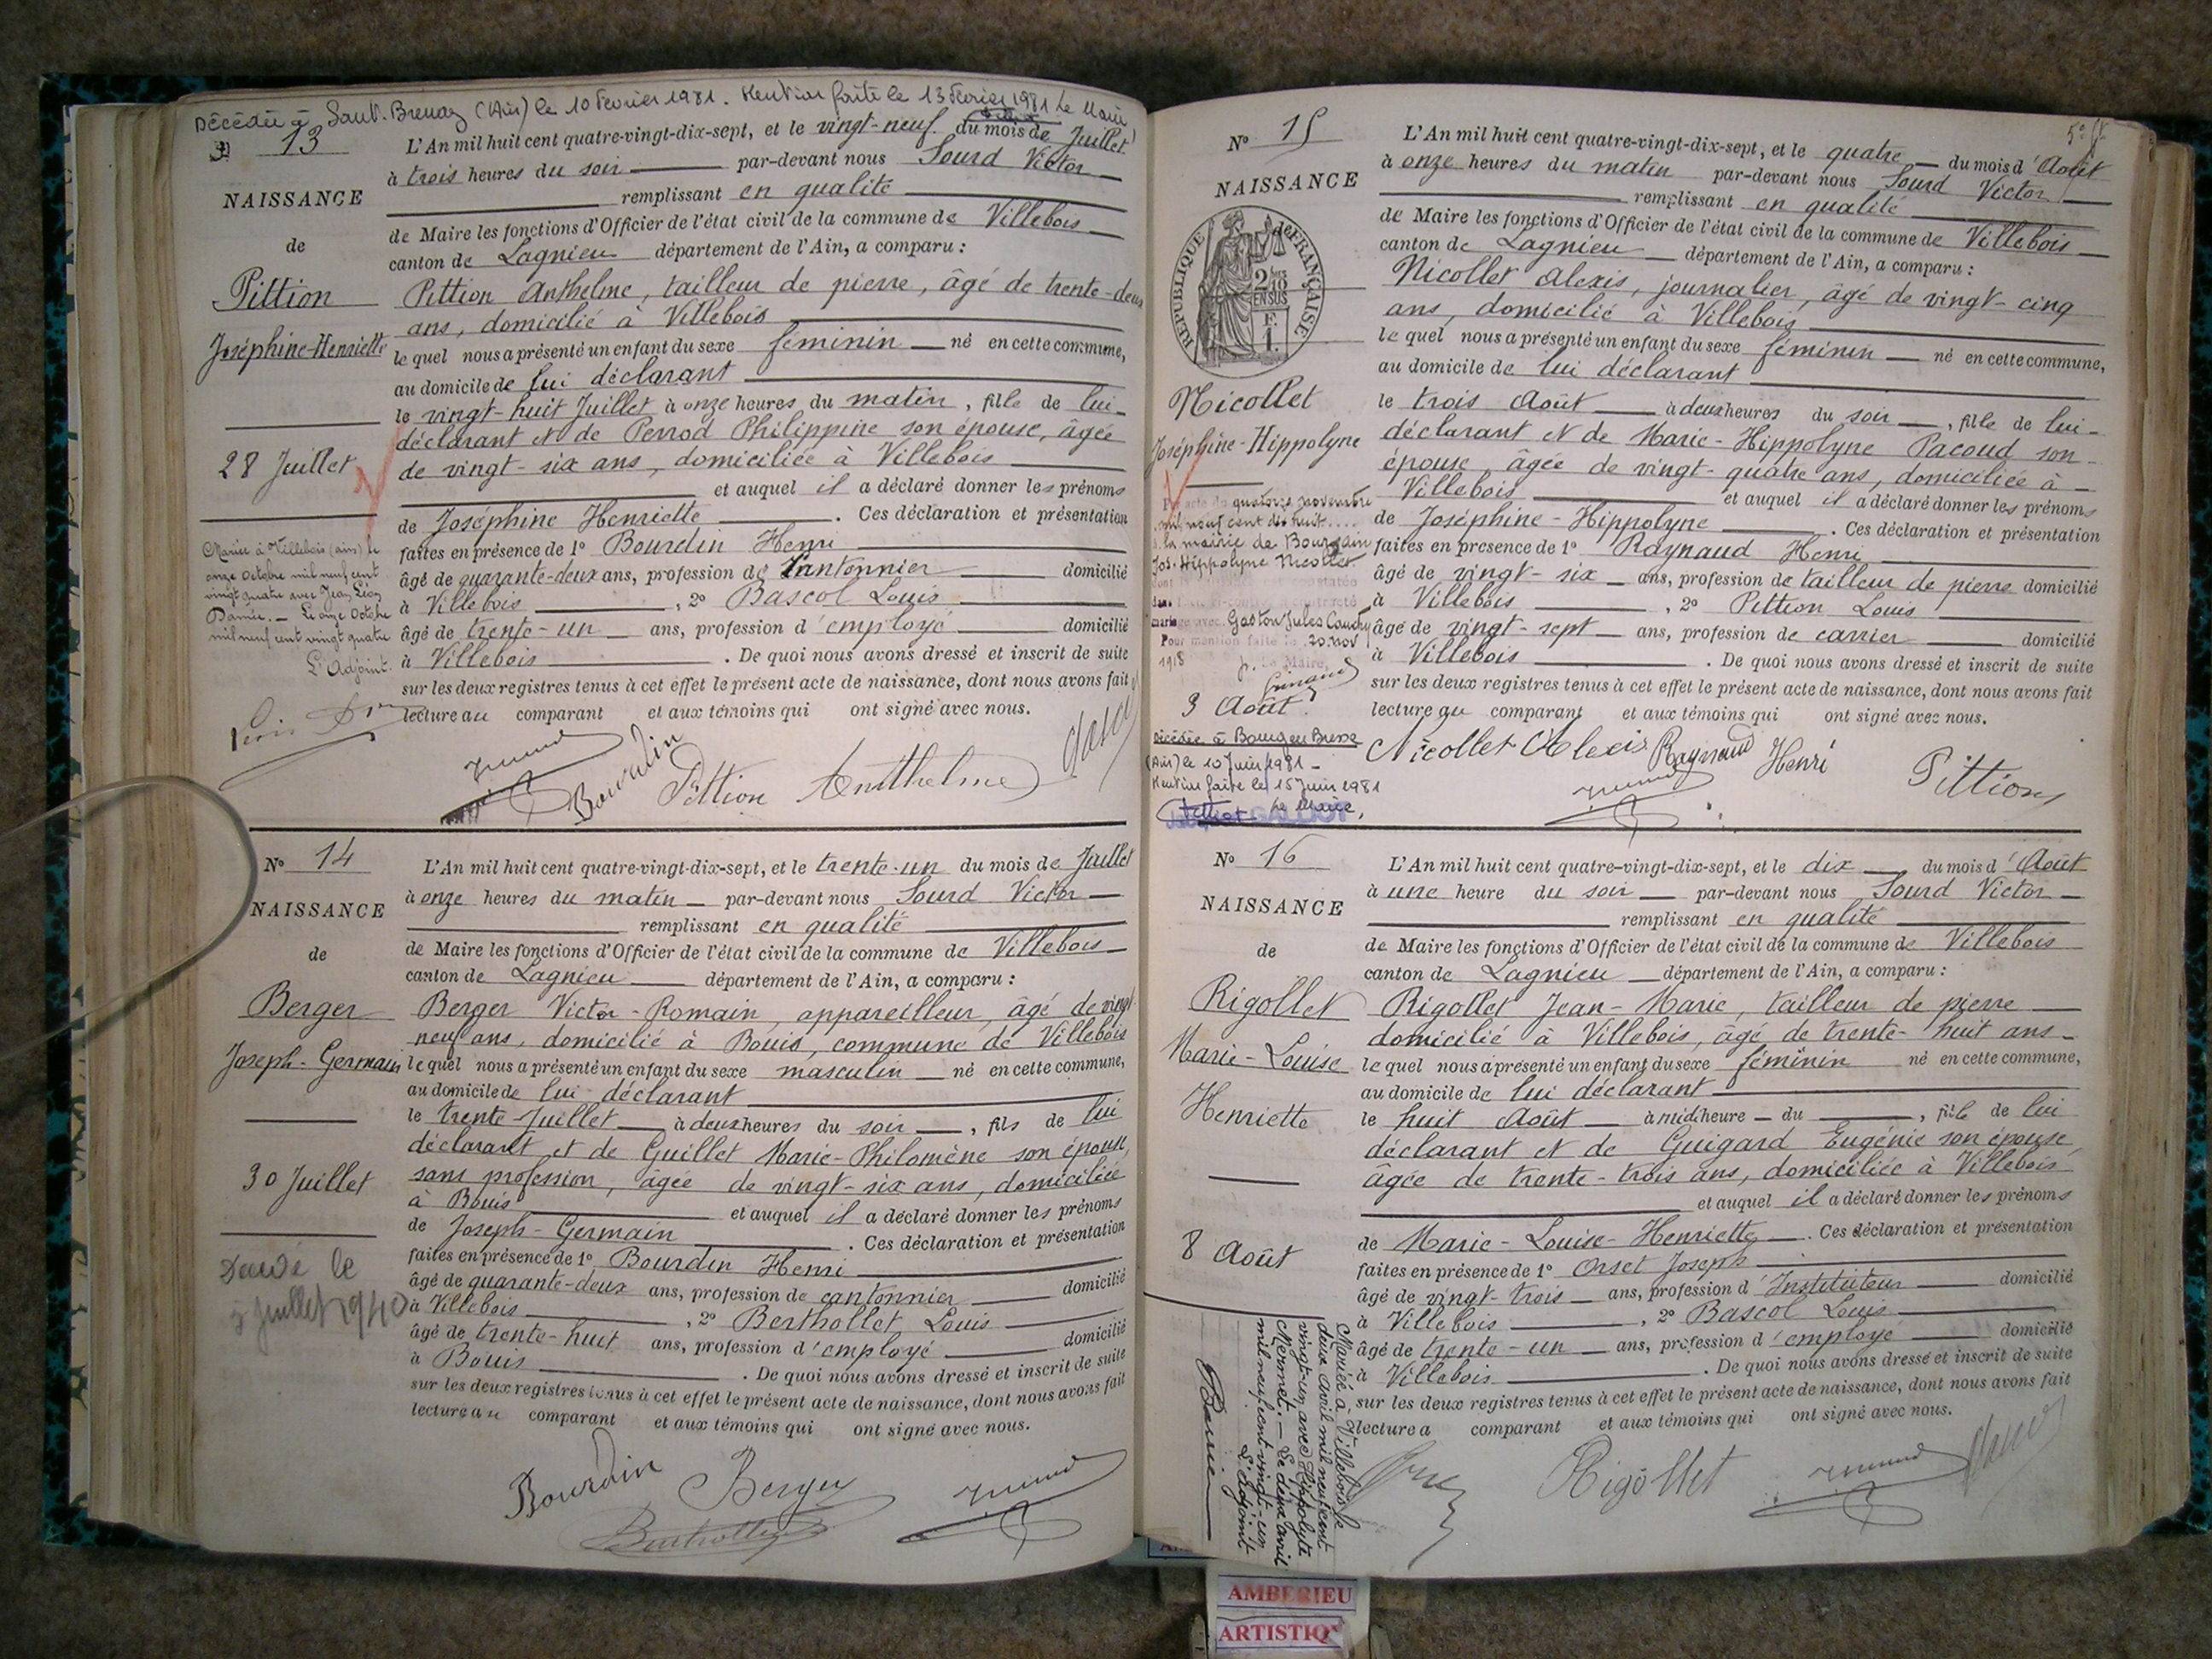 Décédée à Sault-Brenaz (Ain) le 10 Février 1981. Mention faite le 13 Février 1981 Le Maire
13
NAISSANCE
de
Pittion
Joséphine-Henriette
28 Juillet
Mariée à Villebois (ain) le
onze octobre mil neuf cent
vingt quatre avec Jean Léon
Le onze Octobre
mil neuf cent vingt quatre
L'Adjoint.
L'An mil huit cent quatre-vingt-dix-sept, et le vingt-neuf du mois de Juillet
à trois heures du soir par-devant nous Sourd Victor
remplissant en qualité
de Maire les fonctions d'Officier de l'état civil de la commune de Villebois
canton de Lagnieu département de l'Ain, a comparu :
Pittion Anthelme, tailleur de pierre, âgé de trente-deux
ans, domicilié à Villebois
le quel nous a présenté un enfant du sexe féminin né en cette commune,
au domicile de lui déclarant
le vingt-huit Juillet à onze heures du matin, fille de lui-
déclarant et de Perrod Philippine son épouse, âgée
de vingt-six ans, domiciliée à Villebois
et auquel il a déclaré donner les prénoms
de Joséphine Henriette. Ces déclaration et présentation
faites en présence de 1º Bourdin Henri
âgé de quarante-deux ans, profession de Cantonnier domicilié
à Villebois, 2º Bascol Louis
âgé de trente-un ans, profession d'employé domicilié
à Villebois. De quoi nous avons dressé et inscrit de suite
sur les deux registres tenus à cet effet le présent acte de naissance, dont nous avons fait
lecture au comparant et aux témoins qui ont signé avec nous.
Bourdin Pittion Anthelme
Nº 14
NAISSANCE
de
Berger
Joseph-Germain
30 Juillet
Décédé le
5 Juillet 1940
L'An mil huit cent quatre-vingt-dix-sept, et le trente-un du mois de Juillet
à onze heures du matin par-devant nous Sourd Victor
remplissant en qualité
de Maire les fonctions d'Officier de l'état civil de la commune de Villebois
canton de Lagnieu département de l'Ain, a comparu :
Berger Victor-Romain, appareilleur, âgé de vingt-
neuf ans, domicilié à Bouis, commune de Villebois
le quel nous a présenté un enfant du sexe masculin né en cette commune,
au domicile de lui déclarant
le trente-Juillet à deux heures du soir, fils de lui
déclarant et de Guillet Marie-Philomène son épouse,
sans profession, âgée de vingt-six ans, domiciliée
à Bouis et auquel il a déclaré donner les prénoms
de Joseph-Germain. Ces déclaration et présentation
faites en présence de 1º Bourdin Henri
âgé de quarante-deux ans, profession de cantonnier domicilié
à Villebois, 2º Berthollet Louis
âgé de trente-huit ans, profession d'employé domicilié
à Bouis. De quoi nous avons dressé et inscrit de suite
sur les deux registres tenus à cet effet le présent acte de naissance, dont nous avons fait
lecture au comparant et aux témoins qui ont signé avec nous.
Bourdin Berger
Berthollet
Nº 15
NAISSANCE
RÉPUBLIQUE FRANÇAISE
Nicollet
Joséphine-Hippolyne
quatorze novembre
mil neuf cent dix huit
la mairie de Bourg
Jos. Hippolyne Nicollet
mariage avec Gaston Jules Cauchy
Pour mention faite le 20 nov
1918
Le Maire,
3 Août
Décédée à Bourg en Bresse
(Ain) le 10 Juin 1981 -
Mention faite le 15 Juin 1981
Le Maire,
L'An mil huit cent quatre-vingt-dix-sept, et le quatre du mois d'Août
à onze heures du matin par-devant nous Sourd Victor
remplissant en qualité
de Maire les fonctions d'Officier de l'état civil de la commune de Villebois
canton de Lagnieu département de l'Ain, a comparu :
Nicollet Alexis, journalier, âgé de vingt-cinq
ans, domicilié à Villebois
le quel nous a présenté un enfant du sexe féminin né en cette commune,
au domicile de lui déclarant
le trois Août à deux heures du soir, fille de lui-
déclarant et de Marie-Hippolyne Pacoud son
épouse, âgée de vingt-quatre ans, domiciliée à
Villebois et auquel il a déclaré donner les prénoms
de Joséphine-Hippolyne. Ces déclaration et présentation
faites en présence de 1º Raynaud Henri
âgé de vingt-six ans, profession de tailleur de pierre domicilié
à Villebois, 2º Pittion Louis
âgé de vingt-sept ans, profession de carrier domicilié
à Villebois. De quoi nous avons dressé et inscrit de suite
sur les deux registres tenus à cet effet le présent acte de naissance, dont nous avons fait
lecture au comparant et aux témoins qui ont signé avec nous.
Nicollet Alexis Raynaud Henri Pittion
Nº 16
NAISSANCE
de
Rigollet
Marie-Louise
Henriette
8 Août
Mariée à Villebois le
deux avril mil neuf cent
vingt-un avec Hippolyte
Mermet. - Le deux avril
mil neuf cent vingt-un
L'Adjoint
L'An mil huit cent quatre-vingt-dix-sept, et le dix du mois d'Août
à une heure du soir par-devant nous Sourd Victor
remplissant en qualité
de Maire les fonctions d'Officier de l'état civil de la commune de Villebois
canton de Lagnieu département de l'Ain, a comparu :
Rigollet Jean-Marie, tailleur de pierre
domicilié à Villebois, âgé de trente-huit ans
le quel nous a présenté un enfant du sexe féminin né en cette commune,
au domicile de lui déclarant
le huit Août à midi heure du, fille de lui
déclarant et de Guigard Eugénie son épouse,
âgée de trente-trois ans, domiciliée à Villebois
et auquel il a déclaré donner les prénoms
de Marie-Louise-Henriette. Ces déclaration et présentation
faites en présence de 1º Orset Joseph
âgé de vingt-trois ans, profession d'Instituteur domicilié
à Villebois, 2º Bascol Louis
âgé de trente-un ans, profession d'employé domicilié
à Villebois. De quoi nous avons dressé et inscrit de suite
sur les deux registres tenus à cet effet le présent acte de naissance, dont nous avons fait
lecture a comparant et aux témoins qui ont signé avec nous.
Rigollet
AMBERIEU
ARTISTIQ